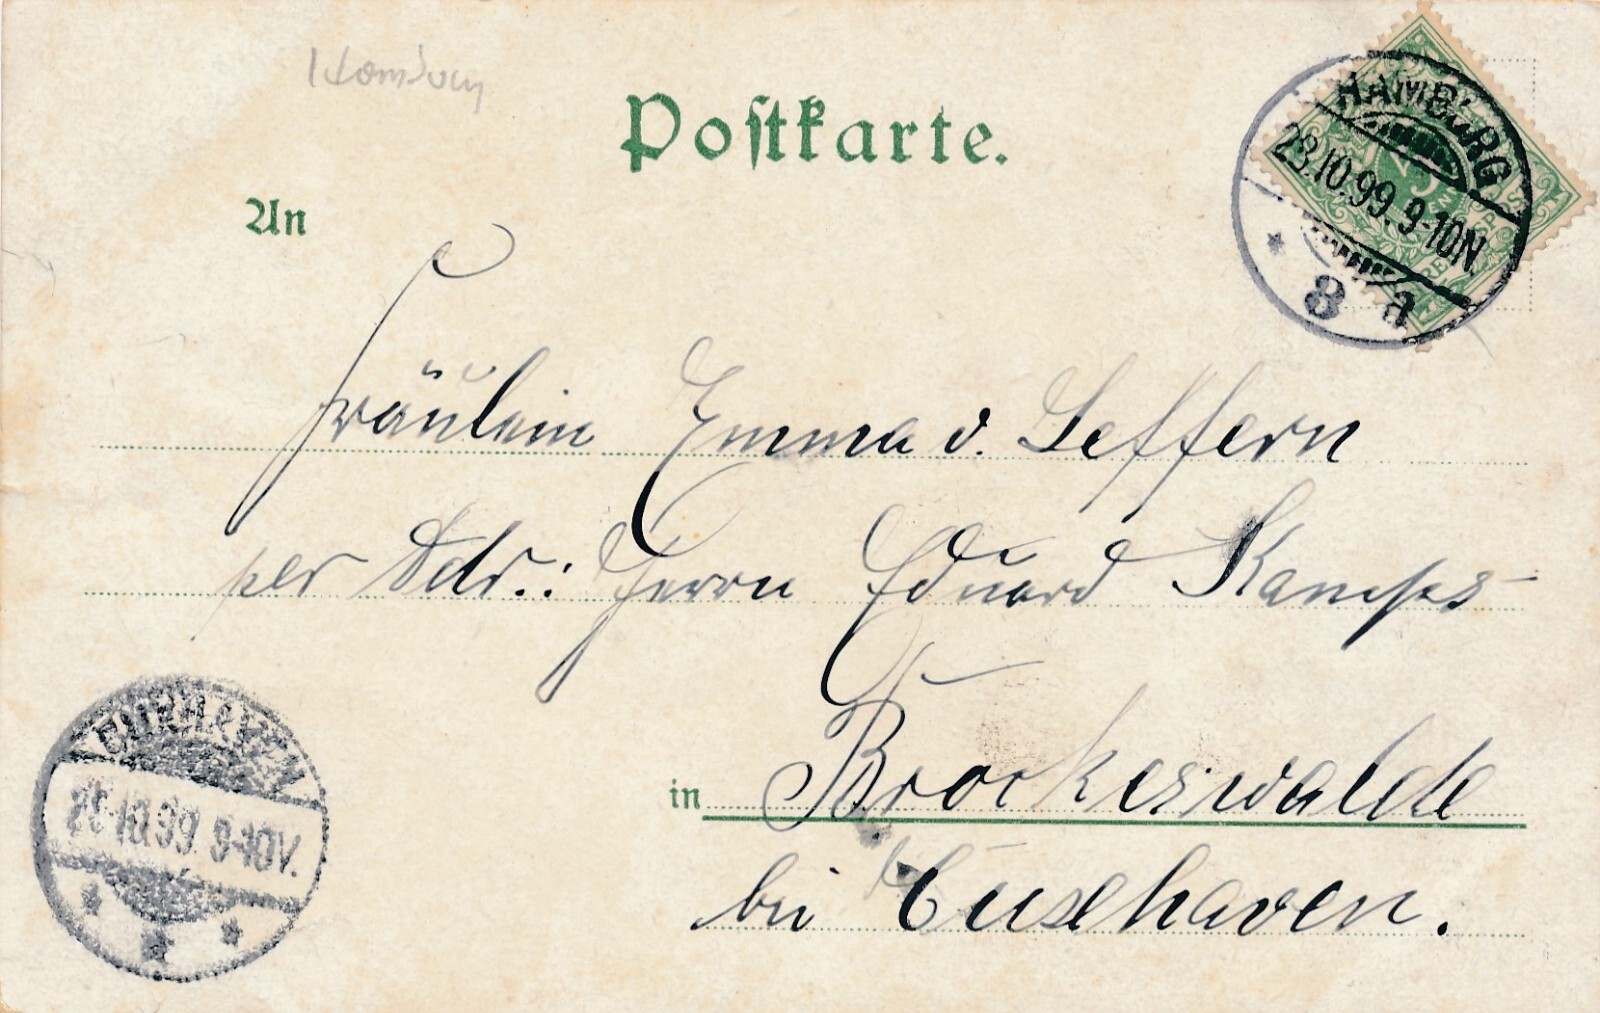 Hamburg
Postkarte.
An
HAMBURG
28.10.99.9-10N.
* 8 a
Fräulein Emma v. Seffern
per Adr.: Herrn Eduard Kamps
in Brockeswalde
bei Cuxhaven.
CUXHAVEN
10.99 9-10V.